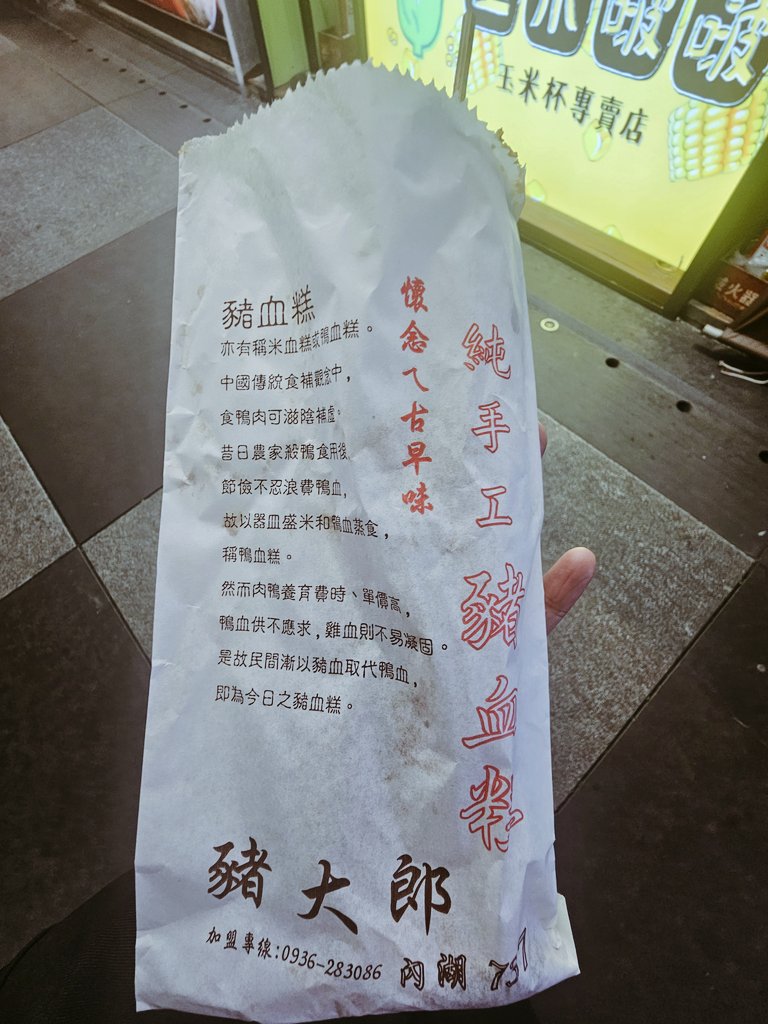 米啵啵
玉米杯專賣店
純手工豬血糕
懷念ㄟ古早味
豬血糕
亦有稱米血糕或鴨血糕。
中國傳統食補觀念中，
食鴨肉可滋陰補虛。
昔日農家殺鴨食用後，
節儉不忍浪費鴨血，
故以器皿盛米和鴨血蒸食，
稱鴨血糕。
然而肉鴨養育費時、單價高，
鴨血供不應求，雞血則不易凝固。
是故民間漸以豬血取代鴨血，
即為今日之豬血糕。
豬大郎
加盟專線：0936-283086 內湖 737
火器